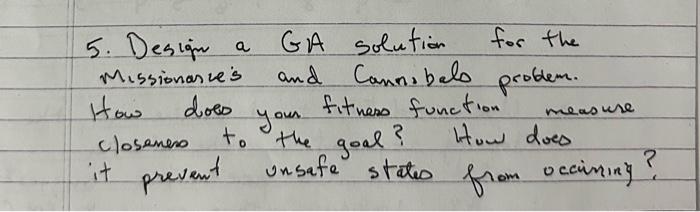 5. Design a GA solution for the
Missionarie's and Cannibals problem.
How does your fitness function measure
closeness to the goal? How does
it prevent unsafe states from occuring?